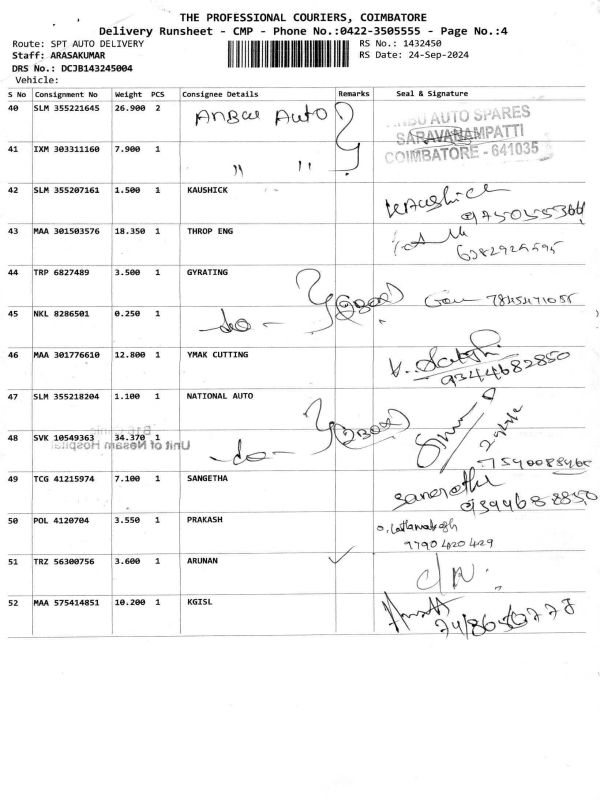 THE PROFESSIONAL COURIERS, COIMBATORE
Delivery Runsheet - CMP - Phone No.:0422-3505555 - Page No.:4
Route: SPT AUTO DELIVERY RS No.: 1432450
Staff: ARASAKUMAR RS Date: 24-Sep-2024
DRS No.: DCJB143245004
Vehicle:
S No Consignment No Weight PCS Consignee Details Remarks Seal & Signature
40 SLM 355221645 26.900 2 Anbu Auto
AUTO SPARES
SARAVANAMPATTI
COIMBATORE - 641035
41 IXM 303311160 7.900 1 " "
42 SLM 355207161 1.500 1 KAUSHICK Kaushick
9750355366
43 MAA 301503576 18.350 1 THROP ENG
6382925595
44 TRP 6827489 3.500 1 GYRATING (2Box) 7845471055
45 NKL 8286501 0.250 1 -do-
46 MAA 301776610 12.800 1 YMAK CUTTING
9344682850
47 SLM 355218204 1.100 1 NATIONAL AUTO (2Box)
48 SVK 10549363 34.370 1 -do-
Unit of Nesam Hospital
7540088466
49 TCG 41215974 7.100 1 SANGETHA
93944688850
50 POL 4120704 3.550 1 PRAKASH
9790420429
51 TRZ 56300756 3.600 1 ARUNAN
52 MAA 575414851 10.200 1 KGISL